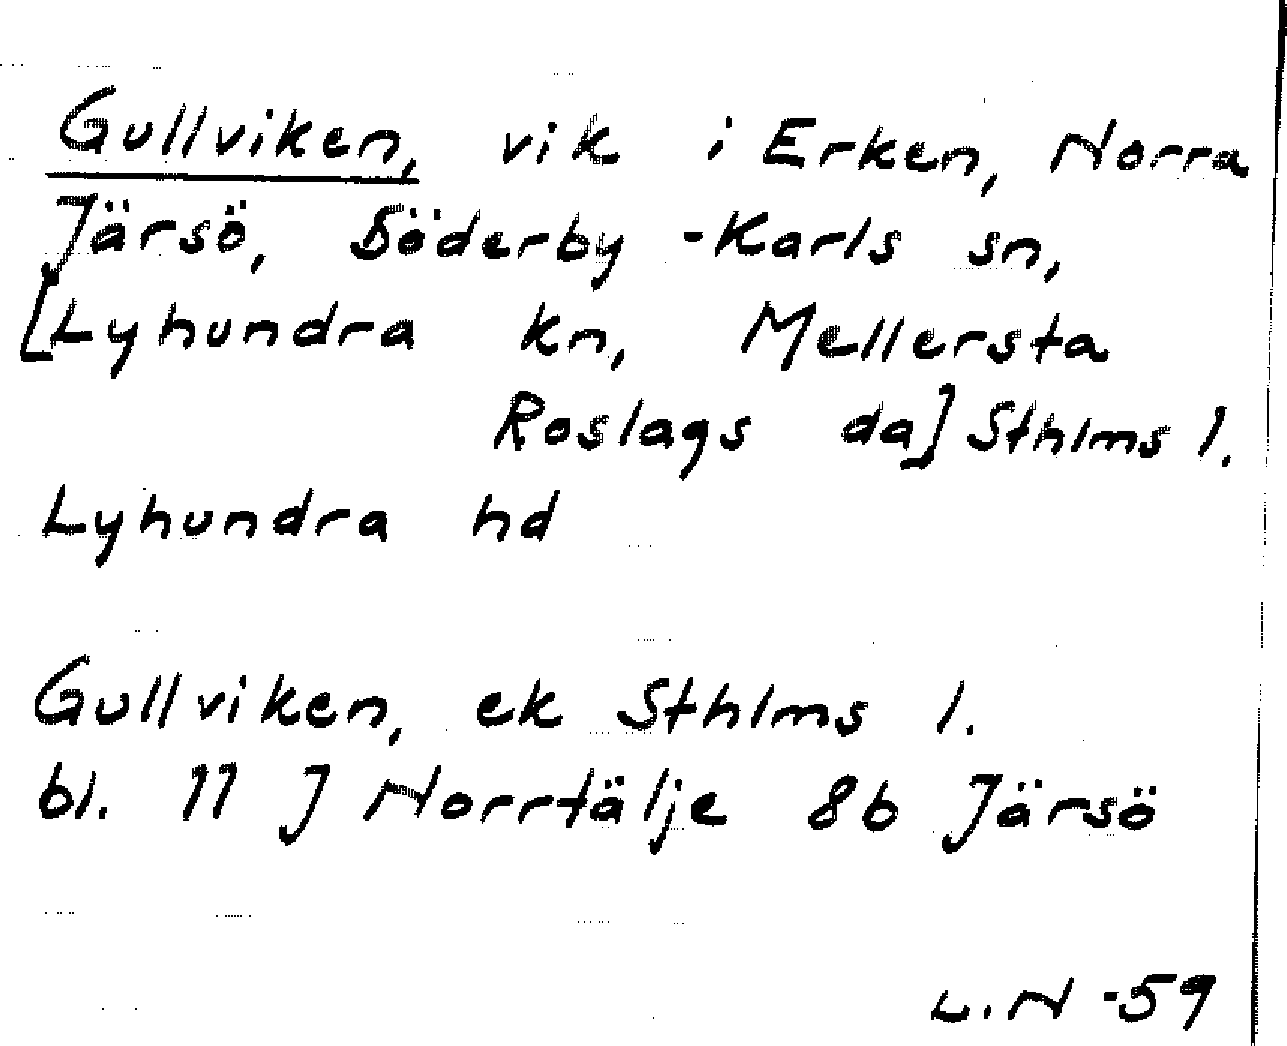 Gullviken, vik i Erken, Norra
Järsö, Söderby-Karls sn,
[Lyhundra kn, Mellersta
Roslags da] Sthlms l.
Lyhundra hd
Gullviken, ek Sthlms l.
bl. 11 J Norrtälje 8b Järsö
L.N -59